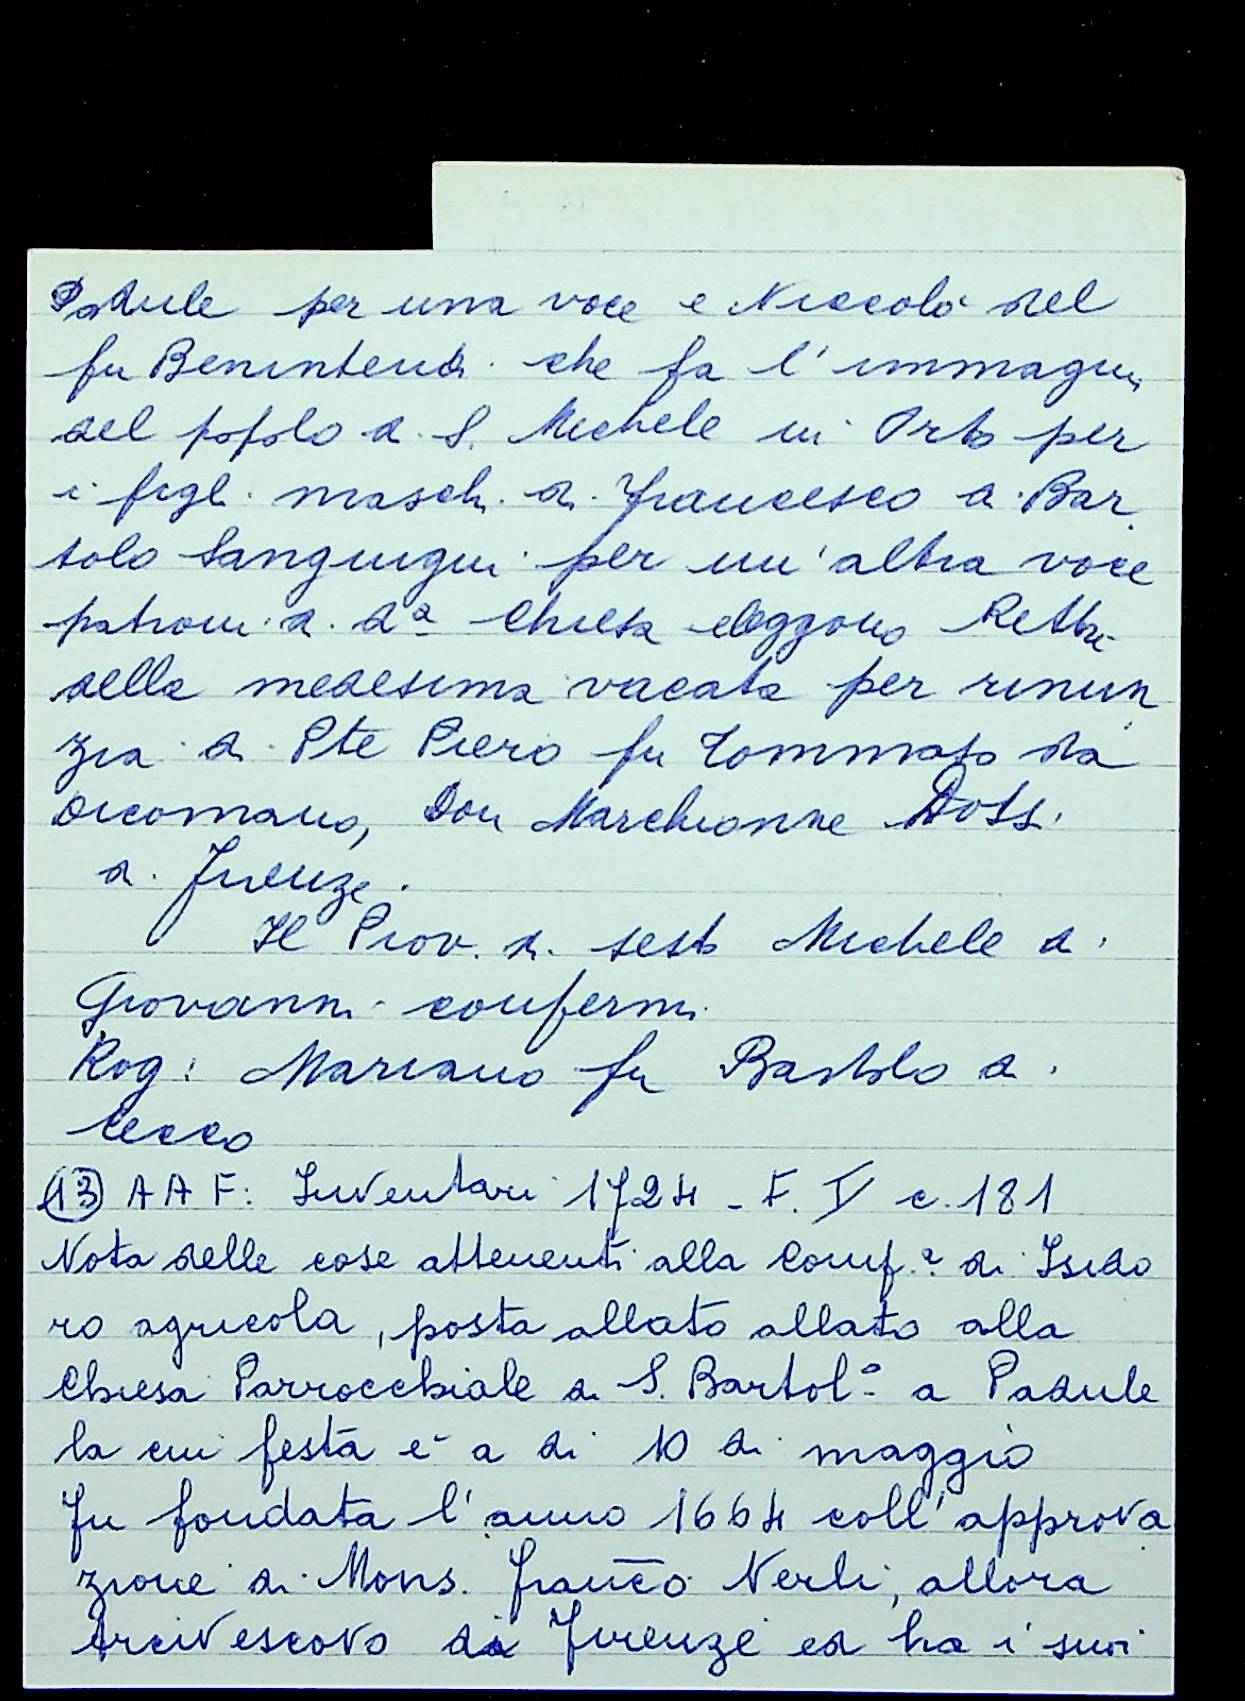 Padule per una voce e Niccolò del
fu Benintendi che fa l'immagini
del popolo di S. Michele in Orto per
i figli maschi di Francesco di Bar
tolo Sanguigni per un'altra voce
patroni di dª Chiesa eleggono Rettore
della medesima vacata per rinun
zia di Pte Piero fu Tommaso da
Dicomano, Don Marchionne Dotti.
di Firenze.
Il Piov. di Sesto Michele di
Giovanni confermi
Rog: Mariano fu Bartolo di
Cecco
(13) A A F: Inventari 1724 - F. V c. 181
Nota delle cose attenenti alla Comp.ª di Isido
ro agricola, posta allato allato alla
Chiesa Parrocchiale di S. Bartol.º a Padule
la cui festa è a di 10 di maggio
Fu fondata l'anno 1664 coll'approva
zione di Mons. Franco Nerli, allora
Arcivescovo di Firenze ed ha i suoi